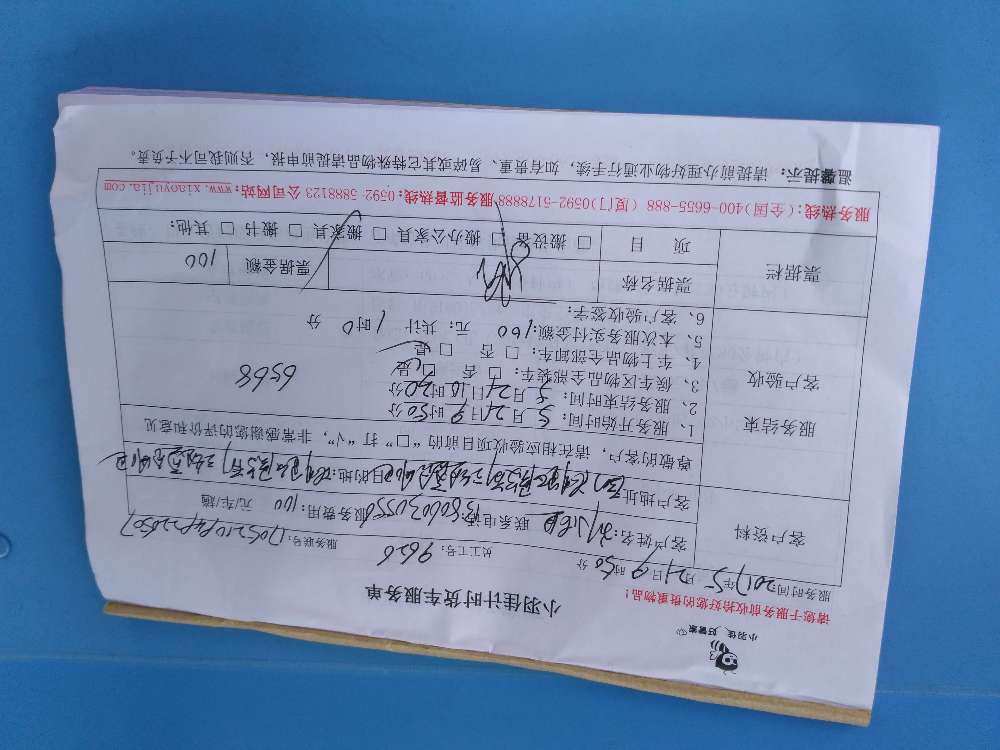 小羽佳 好管家
请您于服务前收拾好您的贵重物品！
小羽佳计时货车服务单
服务时间：2017年5月21日9时50分 员工工号：9626 服务联号：
客户资料
客户姓名： 联系电话： 服务费用：100 元/车/趟
客户地址： 目的地：
服务结束
客户验收
尊敬的客户，请在相应验收项目前的“□”打“√”，非常感谢您的评价和意见
1、服务开始时间：5月21日9时50分
2、服务结束时间：5月21日10时20分
3、候车区物品全部装车：□ 否 □ 是
6568
4、车上物品全部卸车：□ 否 □ 是
5、本次服务实付金额：100 元；共计 1时0分
6、客户验收签字：
票据栏
票据名称 票据金额 100
项 目 □ 搬设备 □ 搬办公家具 □ 搬家具 □ 搬书 □ 其他：
服务热线：(全国)400-6655-888 (厦门)0592-5178888 服务监督热线：0592-5888123 公司网站：www.xiaoyujia.com
温馨提示：请提前办理好物业通行手续，如有贵重、易碎或其它特殊物品请提前申报，否则我司不予负责。